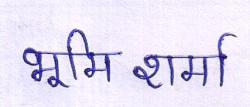 भूमि शर्मा